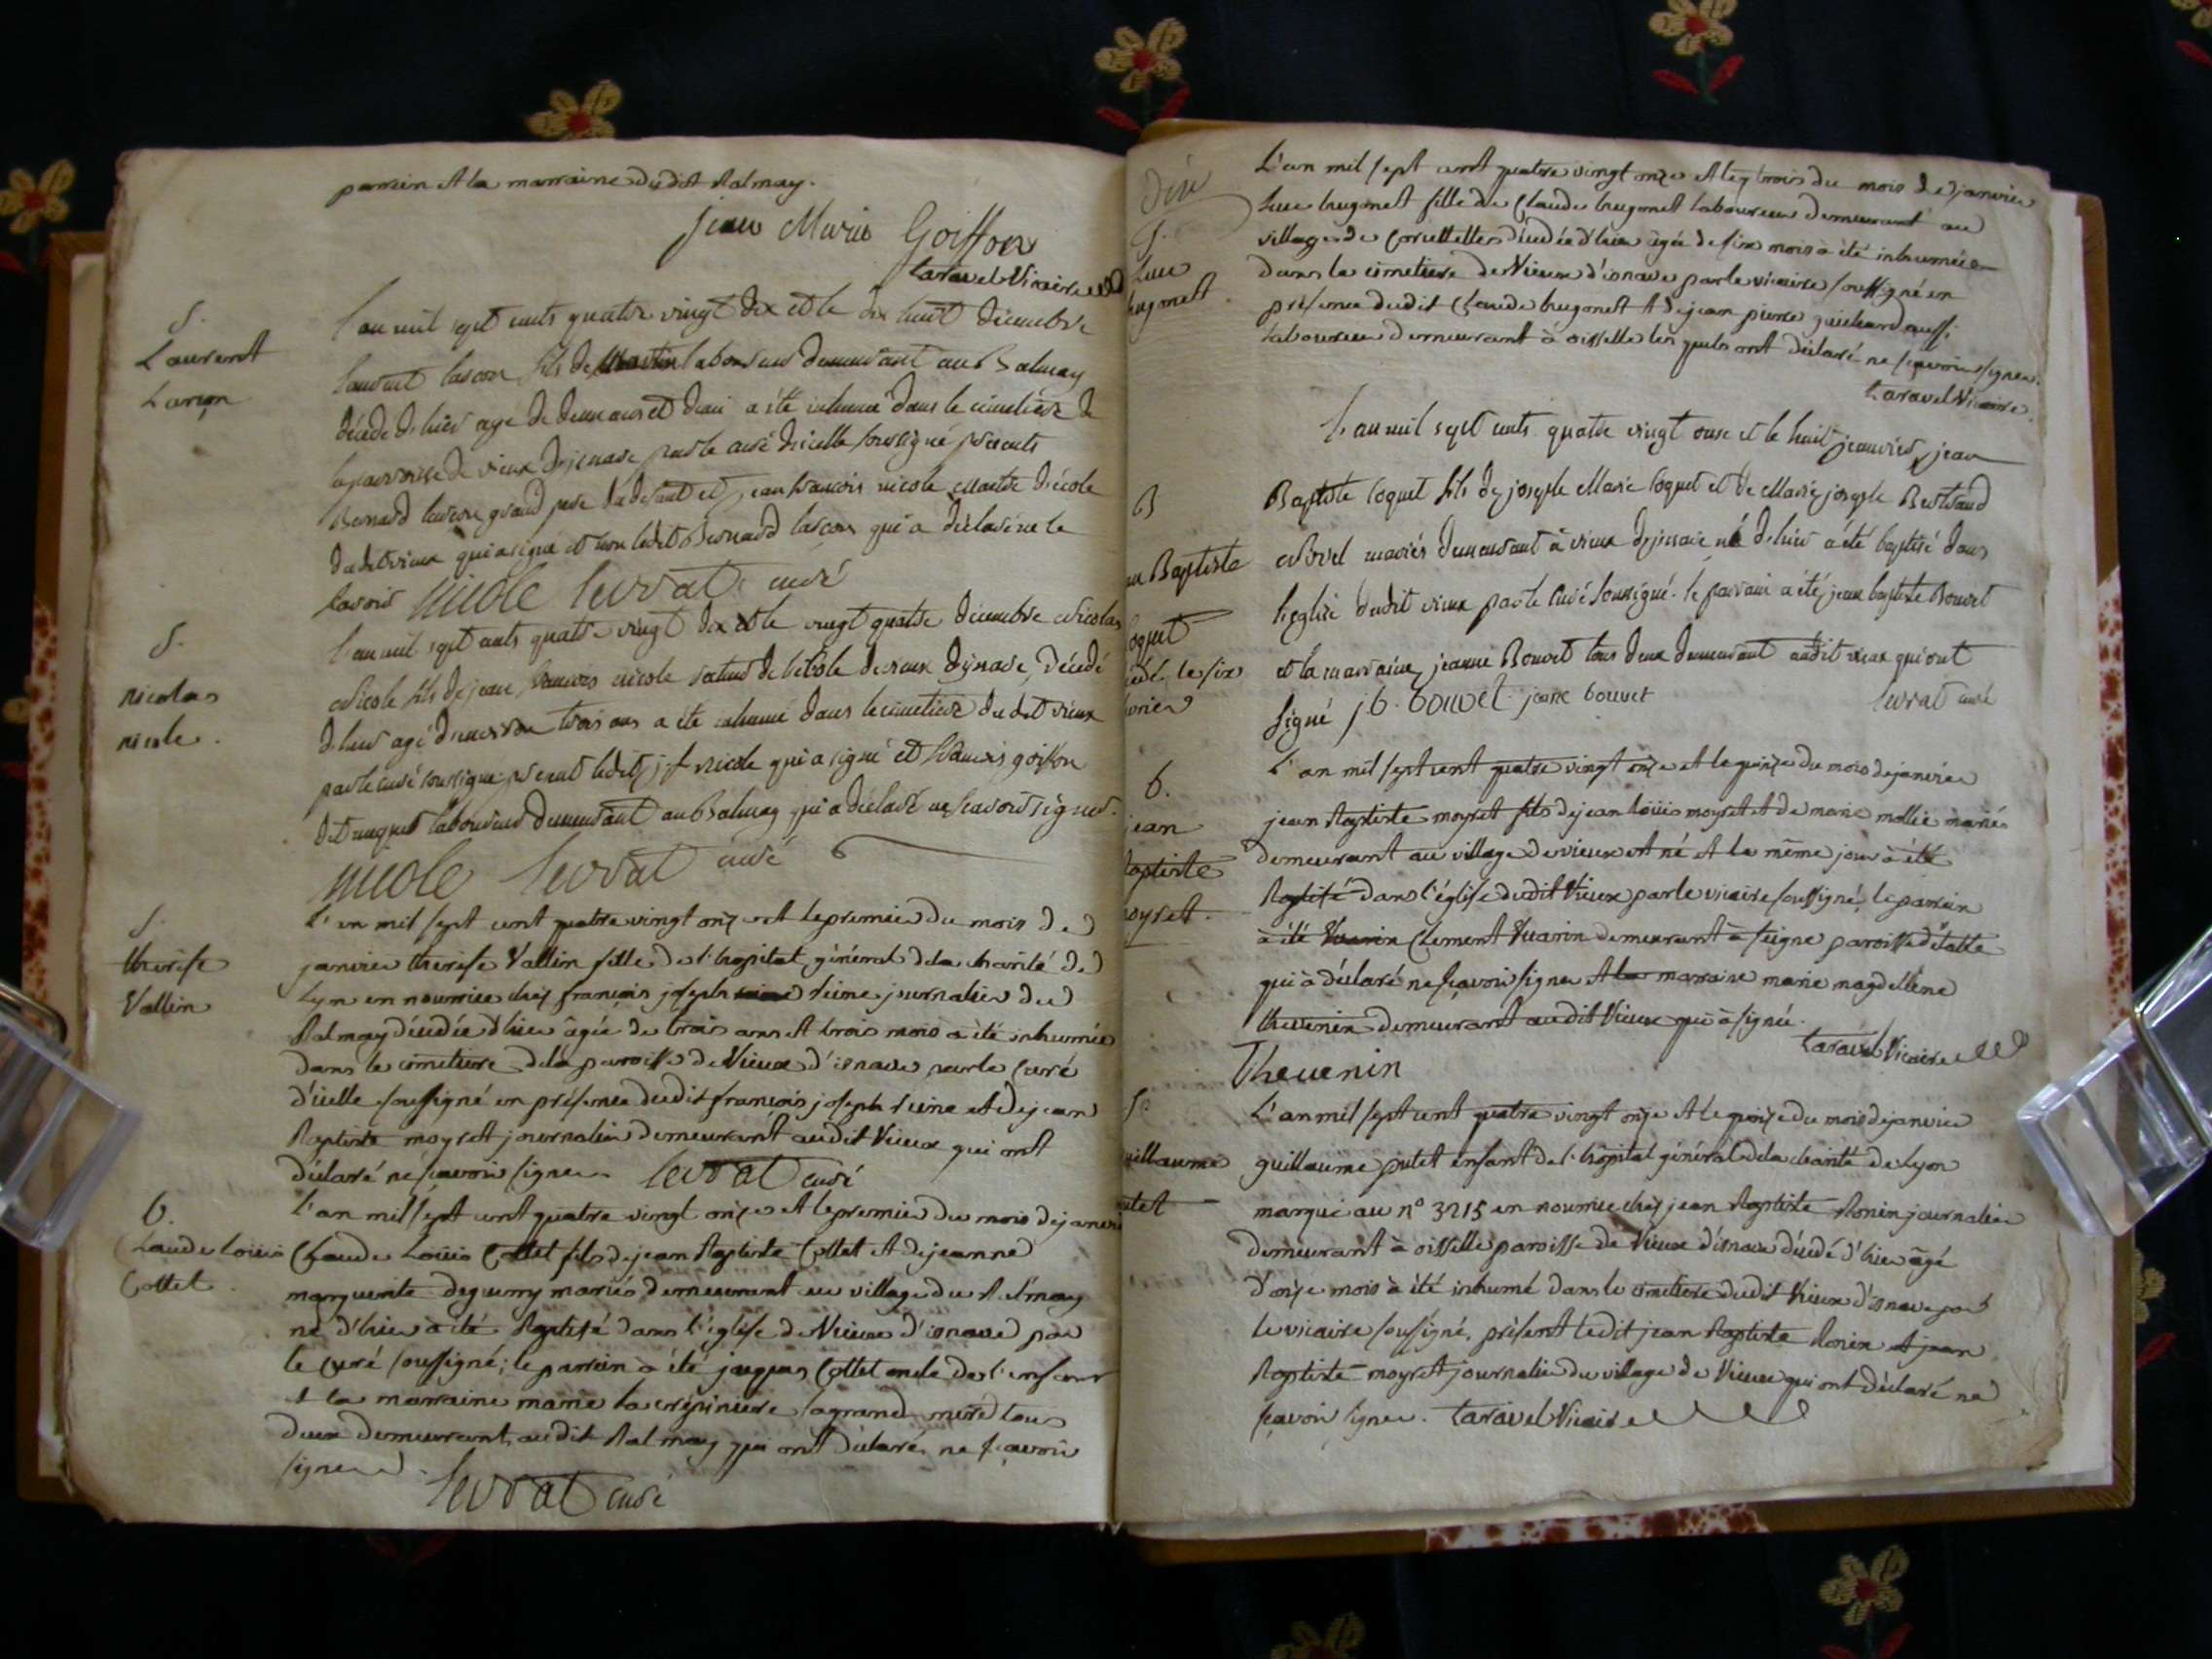 parrein et la marraine dudit Balmay.
jean Marie Goiffon
taravel Vicaire
S.
Laurent
Lançon
l'an mil sept cents quatre vingt dix et le dix huit décembre
laurent lançon fils de Martin laboureur demeurant au Balmay
décédé d'hier agé de deux ans et demi a été inhumé dans le cimetière de
la parroisse de vieux d'izenave par le curé d'icelle soussigné présents
Bernard lançon grand pere du defunt et jean francois nicole Maitre d'école
dudit vieux qui a signé et non ledit Bernard lançon qui a déclaré ne le
savoir nicole levrat curé
S.
nicolas
nicole.
l'an mil sept cents quatre vingt dix et le vingt quatre décembre Nicolas
Nicole fils de jean francois nicole recteur de l'école de vieux d'izenave, décédé
d'hier agé d'environ trois ans a été inhumé dans le cimetière du dit vieux
par le curé soussigné présent ledit j f nicole qui a signé et francois goiffon
dit laboureur demeurant au Balmay qui a déclaré ne savoir signer.
nicole levrat curé
S.
therese
Vallin
L'an mil sept cent quatre vingt onze et le premier du mois de
janvier therese Vallin fille de l'hopital général de la charité de
Lyon en nourrice chez françois joseph reine journalier du
Balmay décédée d'hier âgée de trois ans et trois mois a été inhumée
dans le cimetiere de la paroisse de Vieux d'isnave par le curé
d'icelle soussigné en présence dudit françois joseph reine et de jean
Baptiste moyret journalier demeurant audit Vieux qui ont
déclaré ne sçavoir signer. levrat curé
b.
Claude Loüis
Cottet.
L'an mil sept cent quatre vingt onze et le premier du mois de janvier
Claude Loüis Cottet fils de jean Baptiste Cottet et de jeanne
marguerite deguerry mariés demeurant au village du Balmay
né d'hier a été Baptisé dans l'église de Vieux d'isnave par
le Curé soussigné; le parrein a été jacques Cottet oncle de l'enfant
et la marraine marie la crépiniere sa grand mere tous
deux demeurant audit Balmay qui ont déclaré ne sçavoir
signer.
levrat curé
S.
Luce
hugonet.
L'an mil sept cent quatre vingt onze et le trois du mois de janvier
Luce hugonet fille de Claude hugonet laboureur demeurant au
village de Corcellettes décédée d'hier âgée de six mois a été inhumée
dans le cimetiere de Vieux d'isnave par le vicaire soussigné en
présence dudit Claude hugonet et de jean pierre guichard aussi
laboureur demeurant à oisselle les quels ont déclaré ne sçavoir signer.
taravel Vicaire.
B
Baptiste
Coquet
l'an mil sept cents quatre vingt onze et le huit janvier jean
Baptiste Coquet fils de joseph Marie Coquet et de Marie joseph Bertrand
mariés demeurant à vieux d'izenave né d'hier a été baptisé dans
l'église dudit vieux par le curé soussigné. le parrain a été jean baptiste Bouvet
et la marraine jeanne Bouvet tous deux demeurant audit vieux qui ont
signé j b. bouvet jeane bouvet levrat curé
b.
jean
baptiste
moyret.
L'an mil sept cent quatre vingt onze et le quinze du mois de janvier
jean Baptiste moyret fils de jean loüis moyret et de marie mollie mariés
demeurant au village de vieux est né et le même jour à été
Baptisé dans l'église dudit Vieux par le vicaire soussigné, le parrein
a été Clement Vuarin demeurant à paroisse
qui à déclaré ne sçavoir signer et la marraine marie magdeleine
thevenin demeurant audit Vieux qui à signé.
taravel Vicaire
Thevenin
S.
guillaume
L'an mil sept cent quatre vingt onze et le quinze du mois de janvier
guillaume putet enfant de l'hôpital général de la charité de Lyon
marqué au n° 3215 en nourrice chez jean Baptiste Bonin journalier
demeurant à oisselle paroisse de Vieux d'isnave décédé d'hier âgé
d'onze mois à été inhumé dans le cimetiere dudit Vieux d'isnave par
le vicaire soussigné, présent ledit jean Baptiste Bonin et jean
Baptiste moyret journalier du village de Vieux qui ont déclaré ne
sçavoir signer. taravel Vicaire